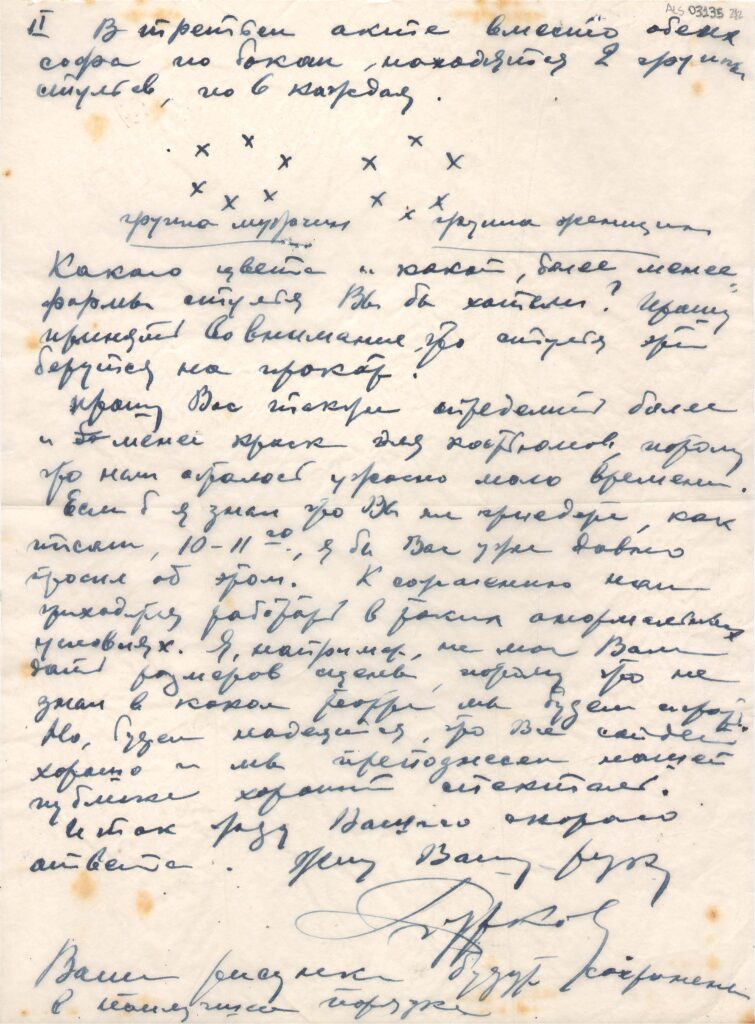 ALS 03135 2/2
II В третьем акте вместо обеих
софа по бокам, находятся 2 группы
стульев, по 6 каждая.
x x x x x x
x x x x x x
группа мужчин группа женщин
Какого цвета и какой, более менее
формы стулья Вы бы хотели? Прошу
принять во внимание, что стулья эти
берутся на прокат.
Прошу Вас также определить более
и менее краск для костюмов, потому
что нам осталось ужасно мало времени.
Если б я знал что Вы не приедете, как
писали, 10-11го, я бы Вас уже давно
просил об этом. К сожалению нам
приходится работать в таких анормальных
условиях. Я, например, не мог Вам
дать размеров сцены, потому что не
знал в каком театре мы будем играть.
Но, будем надеяться, что Все сойдет
хорошо и мы преподнесем нашей
публике хороший спектакль.
Итак жду Вашего скорого
ответа. Жму Вашу руку
Ваши рисунки будут сохранены
в наилучшем порядке